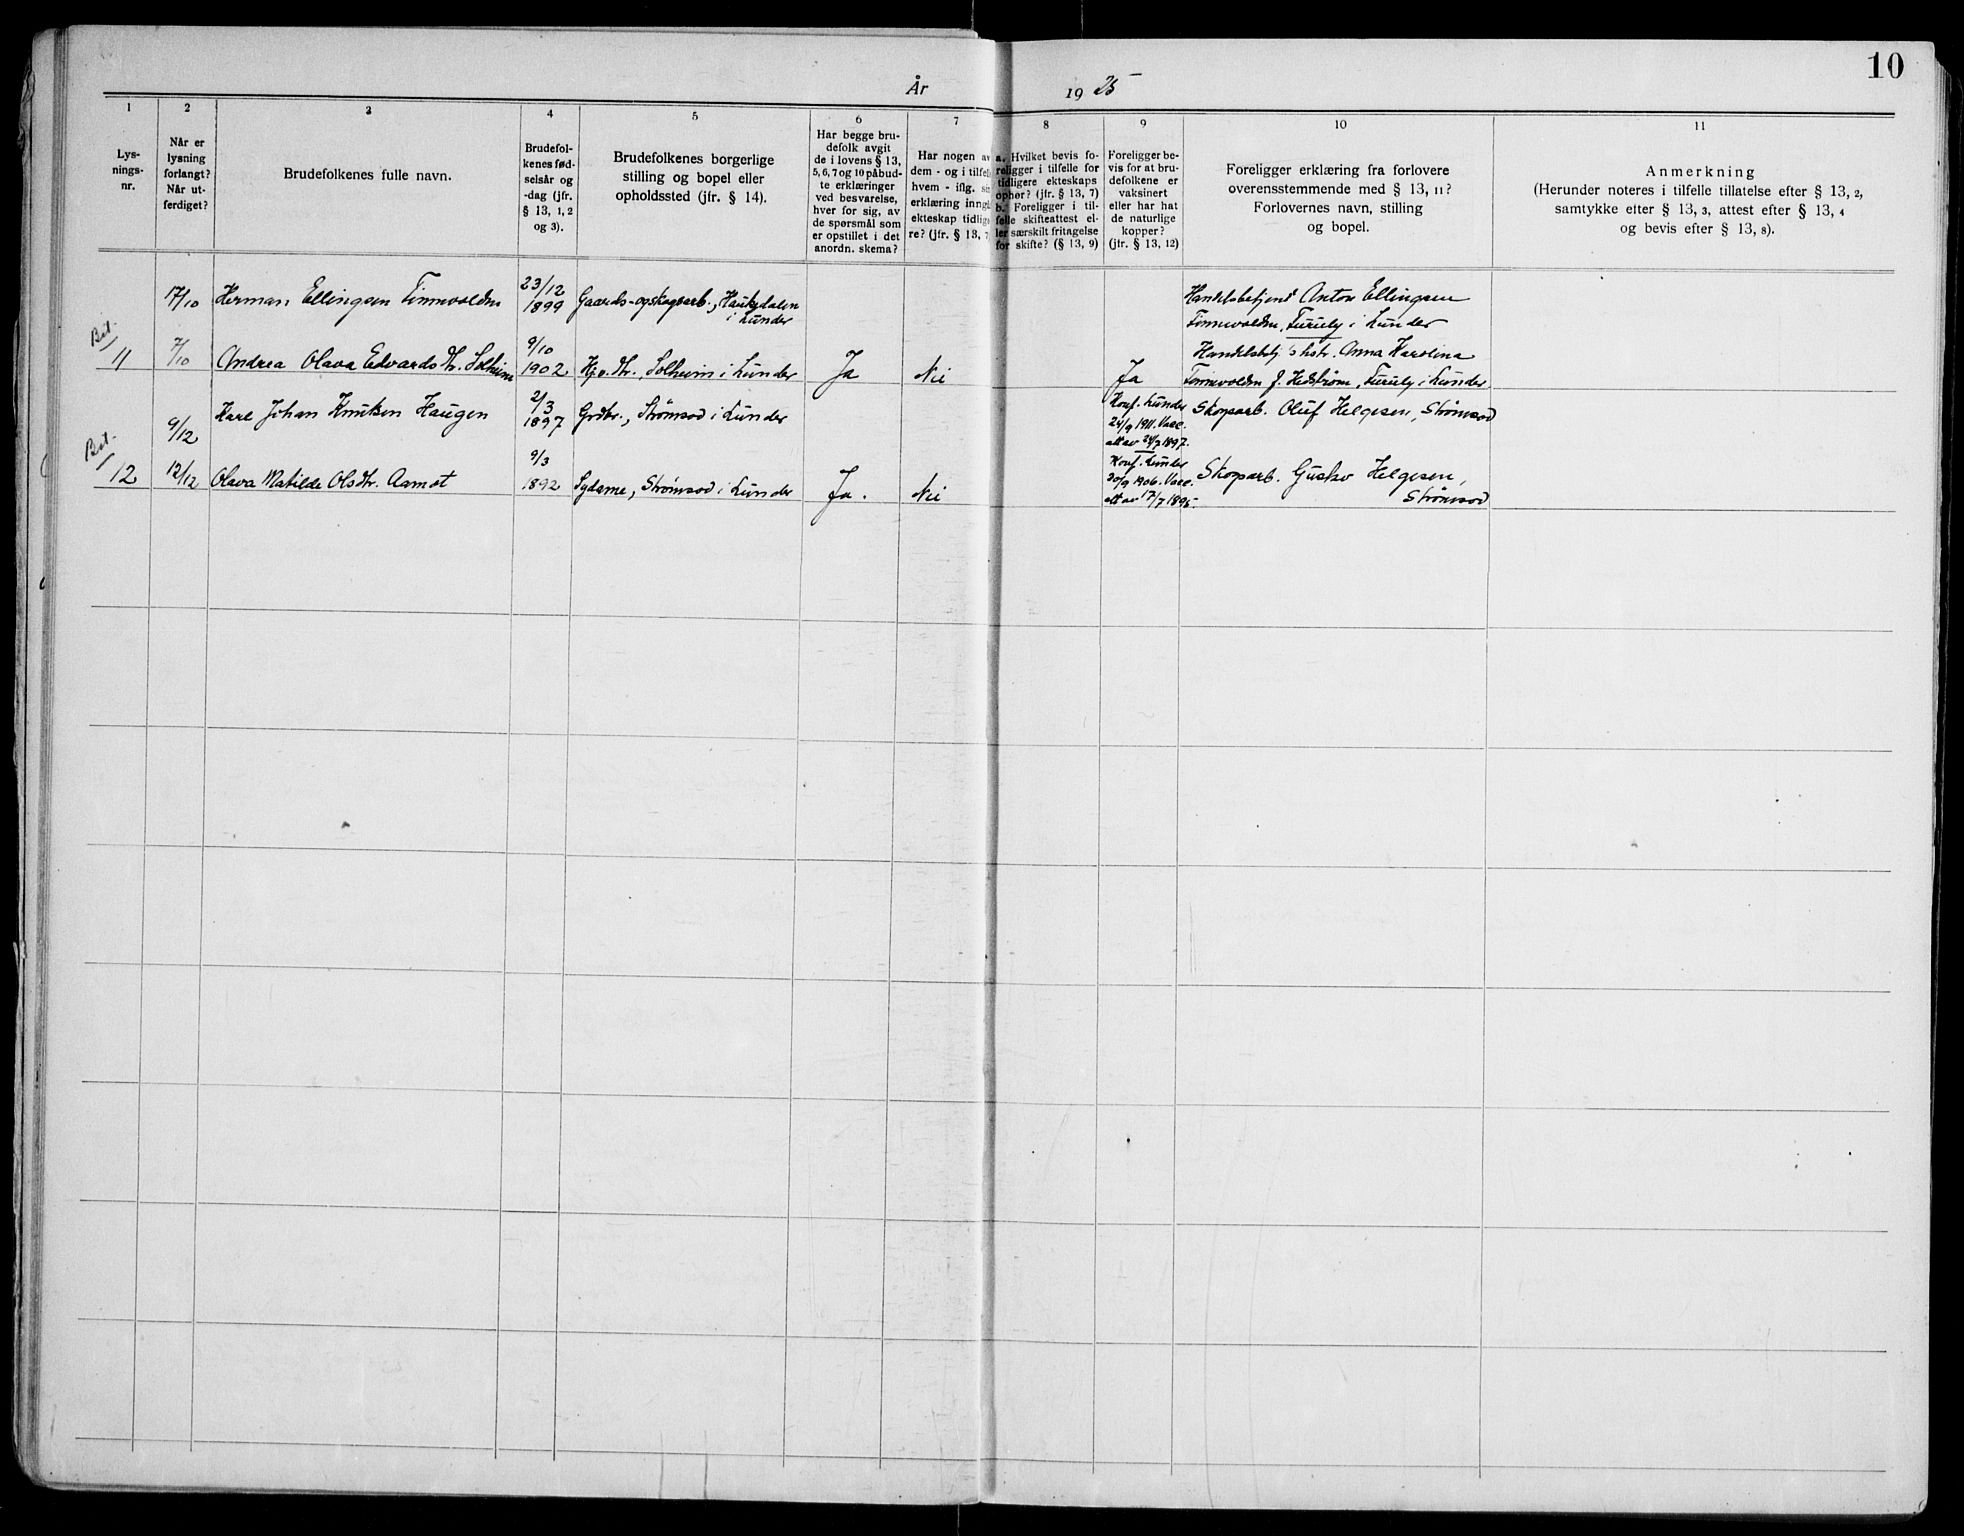 10
År 1925
1
2
3
4
5
6
7
8
9
10
11
Lys-
nings-
nr.
Når er
lysning
forlangt?
Når ut-
ferdiget?
Brudefolkenes fulle navn.
Brudefol-
kenes fød-
selsår og
-dag (jfr.
§ 13, 1, 2
og 3).
Brudefolkenes borgerlige
stilling og bopel eller
opholdssted (jfr. § 14).
Har begge bru-
defolk avgit
de i lovens § 13,
5, 6, 7 og 10 påbud-
te erklæringer
ved besvarelse,
hver for sig, av
de spørsmål som
er opstillet i det
anordn. skema?
Har nogen av
dem - og i tilfelle
hvem - iflg. sin
erklæring inngå
ekteskap tidlige
re? (jfr. § 13, 7
a. Hvilket bevis fo-
religger i tilfelle for
tidligere ekteskaps
ophør? (jfr. § 13, 7)
b. Foreligger i til-
felle skifteattest el-
ler særskilt fritagelse
for skifte? (§ 13, 9)
Foreligger be-
vis for at bru-
defolkene er
vaksinert
eller har hat
de naturlige
kopper?
(jfr. § 13, 12)
Foreligger erklæring fra forlovere
overensstemmende med § 13, 11?
Forlovernes navn, stilling
og bopel.
Anmerkning
(Herunder noteres i tilfelle tillatelse efter § 13, 2,
samtykke efter § 13, 3, attest efter § 13, 4
og bevis efter § 13, 8).
Bet.
11
17/10
7/10
Herman Ellingsen Finnvolden
23/12
1899
Gaards- og skogsarb., Hauksdalen
i Lunder
Handelsbetjent Anton Ellingsen
Finnvolden, Furuly i Lunder
Andrea Olava Edvardsdtr. Solheim
9/10
1902
Hj.v. dtr., Solheim i Lunder
Ja
Nei
Ja
Handelsbetj's hstr. Anna Karolina
Finnvolden f. Hedstrøm, Furuly i Lunder
Bet.
12
9/12
12/12
Karl Johan Knutsen Haugen
2/3
1897
Grdbr., Strømsod i Lunder
Konf. Lunder
24/9 1911. Vacc.
att av 24/7 1897.
Skogsarb. Oluf Helgesen, Strømsod
Olava Matilde Olsdtr. Aamot
9/3
1892
Sydame, Strømsod i Lunder
Ja.
Nei
Konf. Lunder
30/9 1906. Vacc.
att av 17/7 1895.
Skogsarb. Gustav Helgesen,
Strømsod